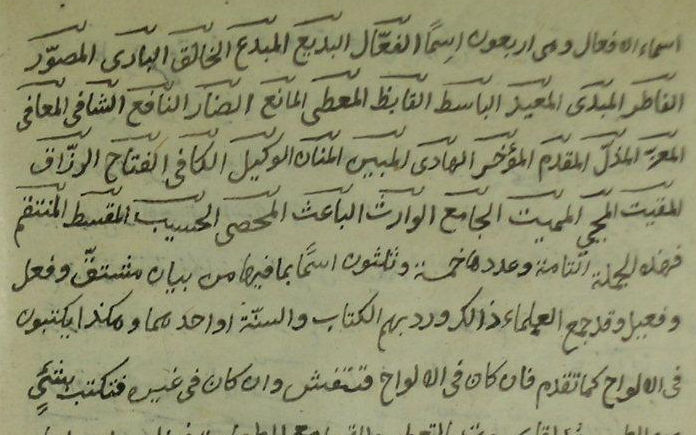 اسماء الافعال وهى اربعون اسمًا الفعّال البديع المبدع الخالق البارى المصوّر
الفاطر المبدى المعيد الباسط القابظ المعطى المانع الضار النافع الشافى المعافى
المعز المذلّ المقدم المؤخر الهادى المبين المنان الوكيل الكافى الفتاح الرزّاق
المقيت المحيى المميت الجامع الوارث الباعث المحصى الحسيب المقسط المنتقم
فهذه الجملة الثامنة وعددها خمسة وثلثون اسمًا بما فيها من بيان مشتقّ وفعل
وفعيل وقد جمع العلماء ذالك ورد بهم الكتاب والسنّة او احدهما وهكذا يكتبون
فى الالواح كما تقدم فان كان فى الالواح فتنقش وان كان فى غيره فتكتب بشئٍ